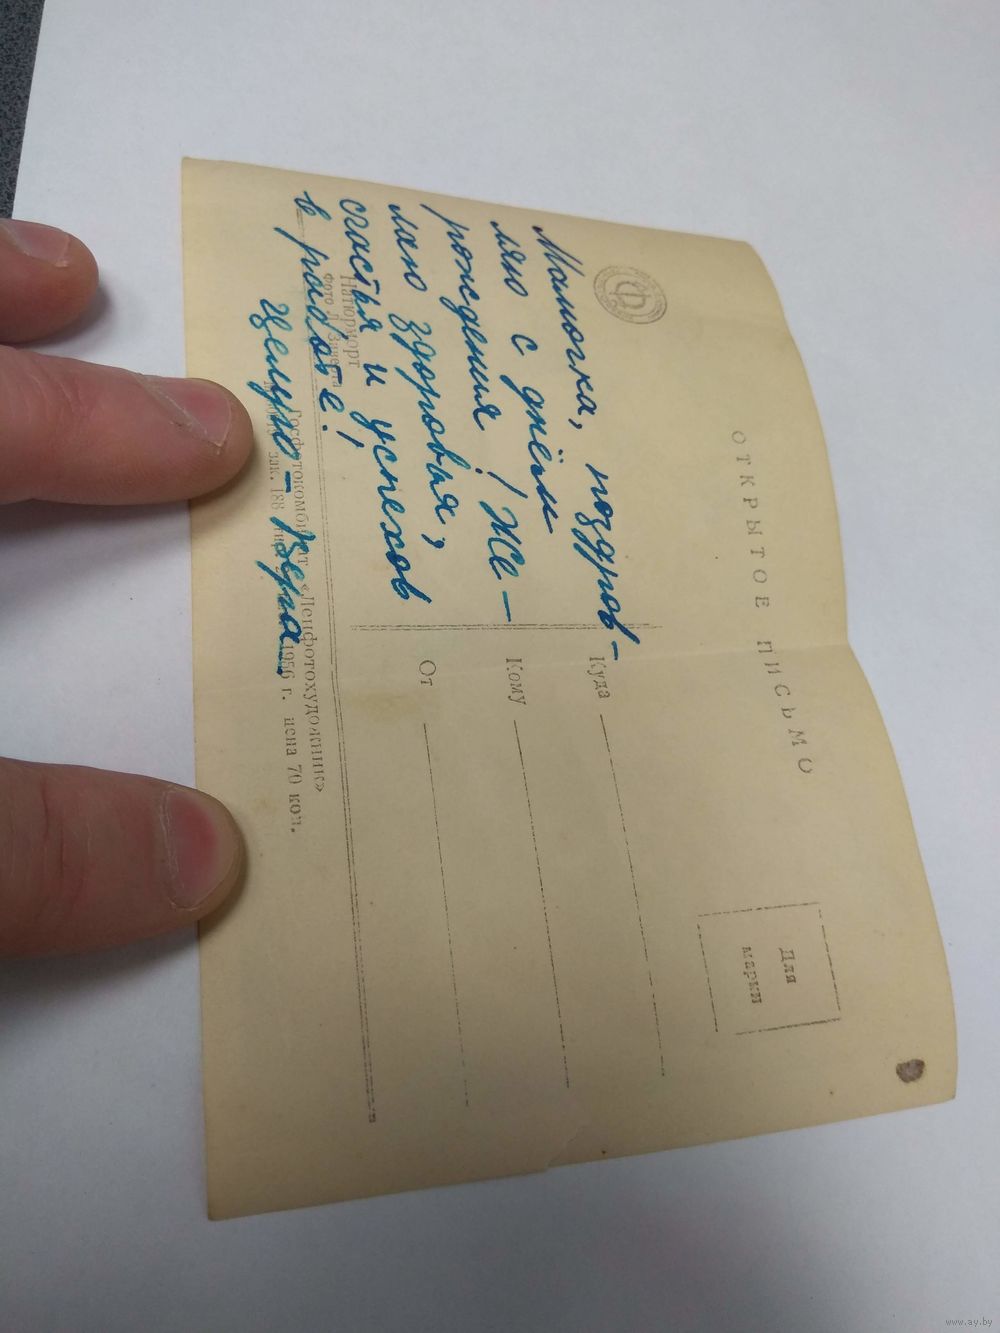 ОТКРЫТОЕ ПИСЬМО
Для
марки
Мамочка, поздрав-
ляю с днём
рождения! Же-
лаю здоровья,
счастья, и успехов
в работе!
Целую - Вера
Куда
Кому
От
Натюрморт
Фото
Госфотокомбинат «Ленфотохудожник»
зак. 188 1956 г. цена 70 коп.
www.ay.by